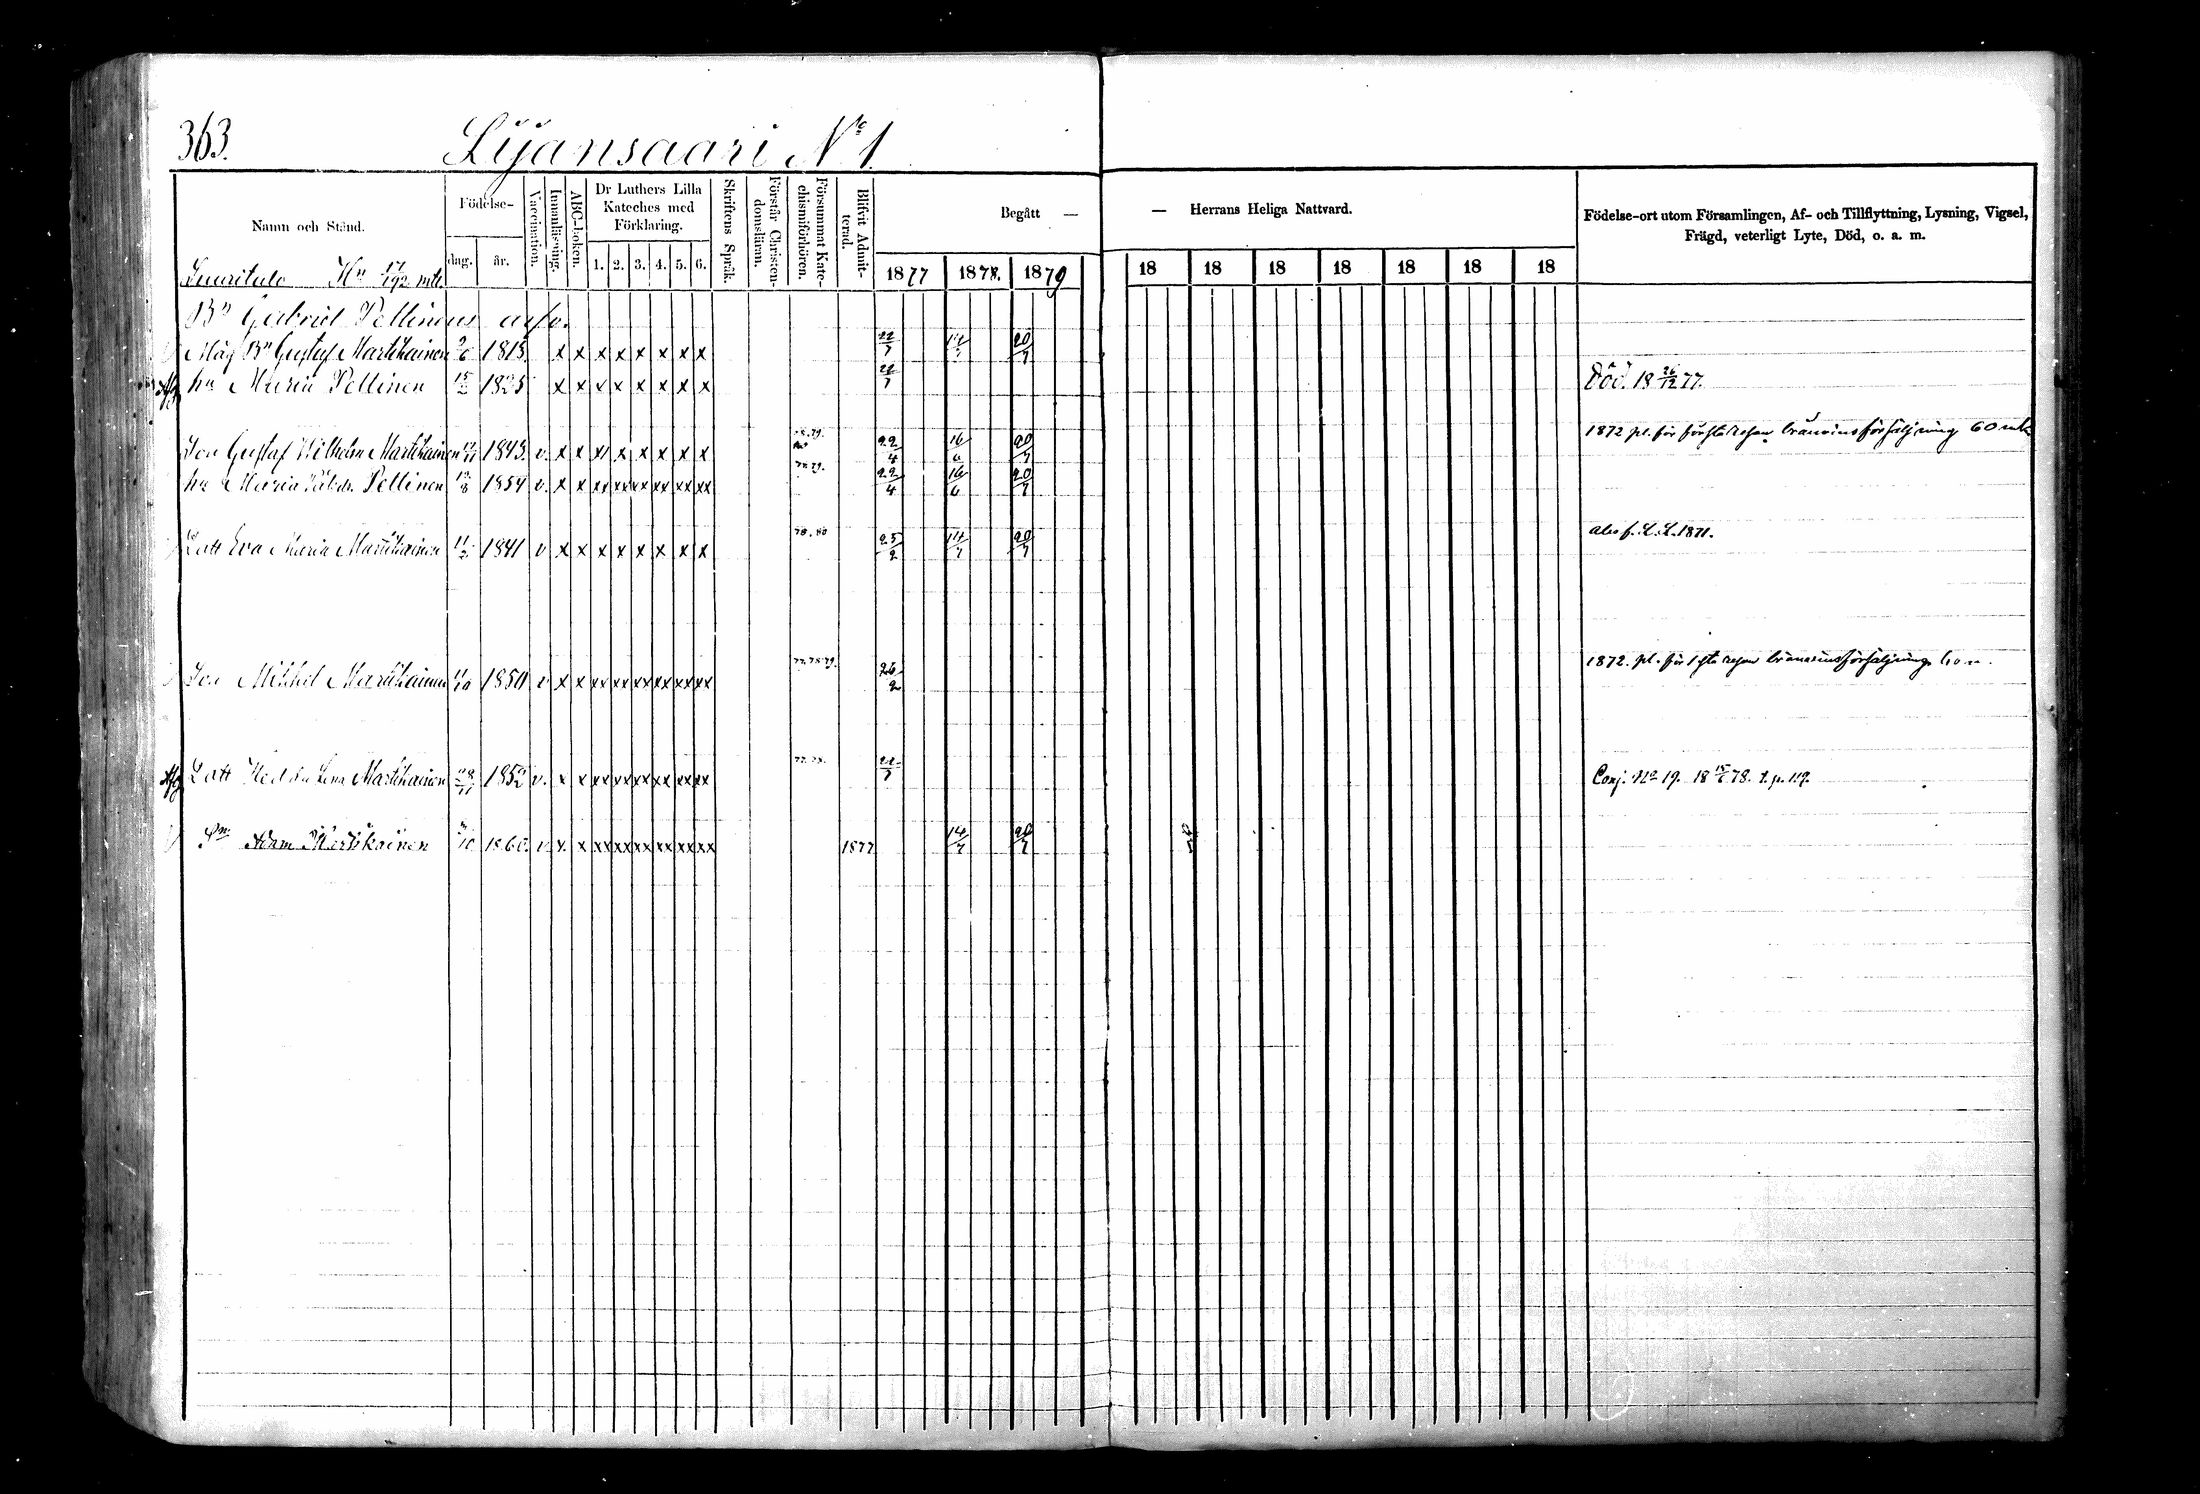 363.
Lijansaari No 1.
Namn och Stånd.
Födelse-
dag.
år.
Vaccination.
Innanläsning.
ABC-boken.
Dr Luthers Lilla
Kateches med
Förklaring.
1. 2. 3. 4. 5. 6.
Skriftens Språk.
Förstår Christen-
domsläran.
Försummat Kate-
chismiförhören.
Blifvit Admit-
terad.
Begått —
— Herrans Heliga Nattvard.
1877 1878. 1879
18 18 18 18 18 18 18
Födelse-ort utom Församlingen, Af- och Tillflyttning, Lysning, Vigsel,
Frägd, veterligt Lyte, Död, o. a. m.
Suuritalo Hn 17/192 mtl.
Bn Gabriel Pellinens arfv.
Måg Bn Gustaf Martikainen 9/6 1815 x x x x x x x x 22/7 14/7 20/7
hu Maria Pellinen 15/2 1825 x x x x x x x x 22/7 Död. 18 26/12 77.
Son Gustaf Wilhelm Martikainen 1843. v. x x x x x x x x 78.79. 22/4 16/6 20/7 1872 pl. för första resan bränvinsförsäljning 60 mk
hu Maria Pellinen 12/8 1854 v. x x xx xx xx xx xx xx 78.79. 22/4 16/6 20/7
Dott Eva Maria Martikainen 11/2 1841 v x x x x x x x x 78.80 25/2 14/7 20/7 abs f. L. L. 1871.
Son Mikkel Martikainen 1850 v x x xx xx xx xx xx xx 77.78.79. 26/2 1872. pl. för 1sta resan bränvinsförsäljning 60 m.
Dott Hedda Lena Martikainen 28/11 1852 v. x x xx xx xx xx xx xx 77.78. 22/7 Conj. No 19. 18 15/6 78. t. p. 119.
Sm Adam Martikainen 3/10 1860. v. x. x xx xx xx xx xx xx 1877 14/7 20/7